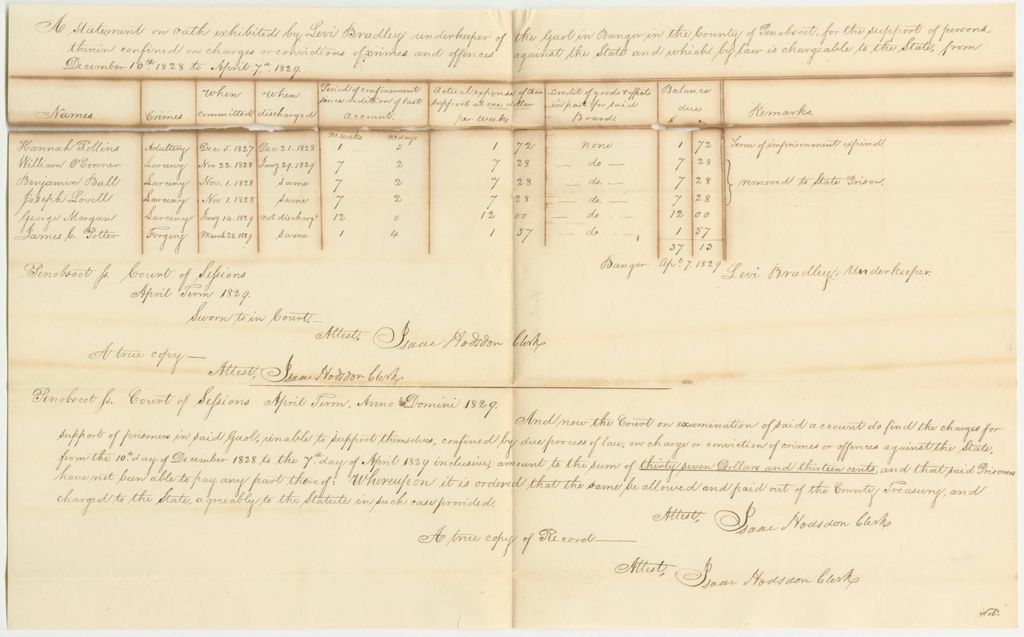 A Statement on oath exhibited by Levi Bradley, underkeeper of the Gaol in Bangor, in the County of Penobscot, for the support of persons
therein confined on charges or convictions of crimes and offences against the State and which by law is chargeable to the State, from
December 10th 1828 to April 7th 1829.
Names Crimes When committed When discharged Period of confinement since rendition of last account. Actual expense of their support at one dollar per week Credit of goods & effects in part for said Board Balance due Remarks.
No weeks No days
Hannah Rollins Adultery Dec. 5. 1827 Dec. 21. 1828 1 5 1 72 none 1 72 Term of imprisonment expired
William O'Conner Larceny Nov. 22. 1828 Jany 29. 1829 7 2 7 28 — do — 7 28
Benjamin Ball Larceny Nov. 1. 1828 same 7 2 7 28 — do — 7 28 removed to State Prison.
Joseph Lovell Larceny Nov. 1. 1828 same 7 2 7 28 — do — 7 28
George Morgan Larceny Jany 14. 1829 not discharg'd 12 0 12 00 — do — 12 00
James C. Potter Forgery March 28. 1829 same 1 4 1 57 — do — 1 57
37 13
Bangor Apl. 7. 1829 Levi Bradley, Underkeeper.
Penobscot ss. Court of Sessions
April Term 1829.
Sworn to in Court.—
Attest, Isaac Hodsdon Clerk
A true copy —
Attest, Isaac Hodsdon Clerk
Penobscot ss. Court of Sessions April Term, Anno Domini 1829.
And now the Court on examination of said account do find the charges for
support of prisoners in said Gaol, unable to support themselves, confined by due process of law, on charge or conviction of crimes or offences against the State,
from the 10th day of December 1828 to the 7th day of April 1829 inclusive, amount to the sum of thirty seven Dollars and thirteen cents, and that said Prisoners
have not been able to pay any part thereof: Whereupon it is ordered that the same be allowed and paid out of the County Treasury, and
charged to the State, agreeably to the Statute in such case provided.
Attest, Isaac Hodsdon Clerk
A true copy of Record —
Attest, Isaac Hodsdon Clerk